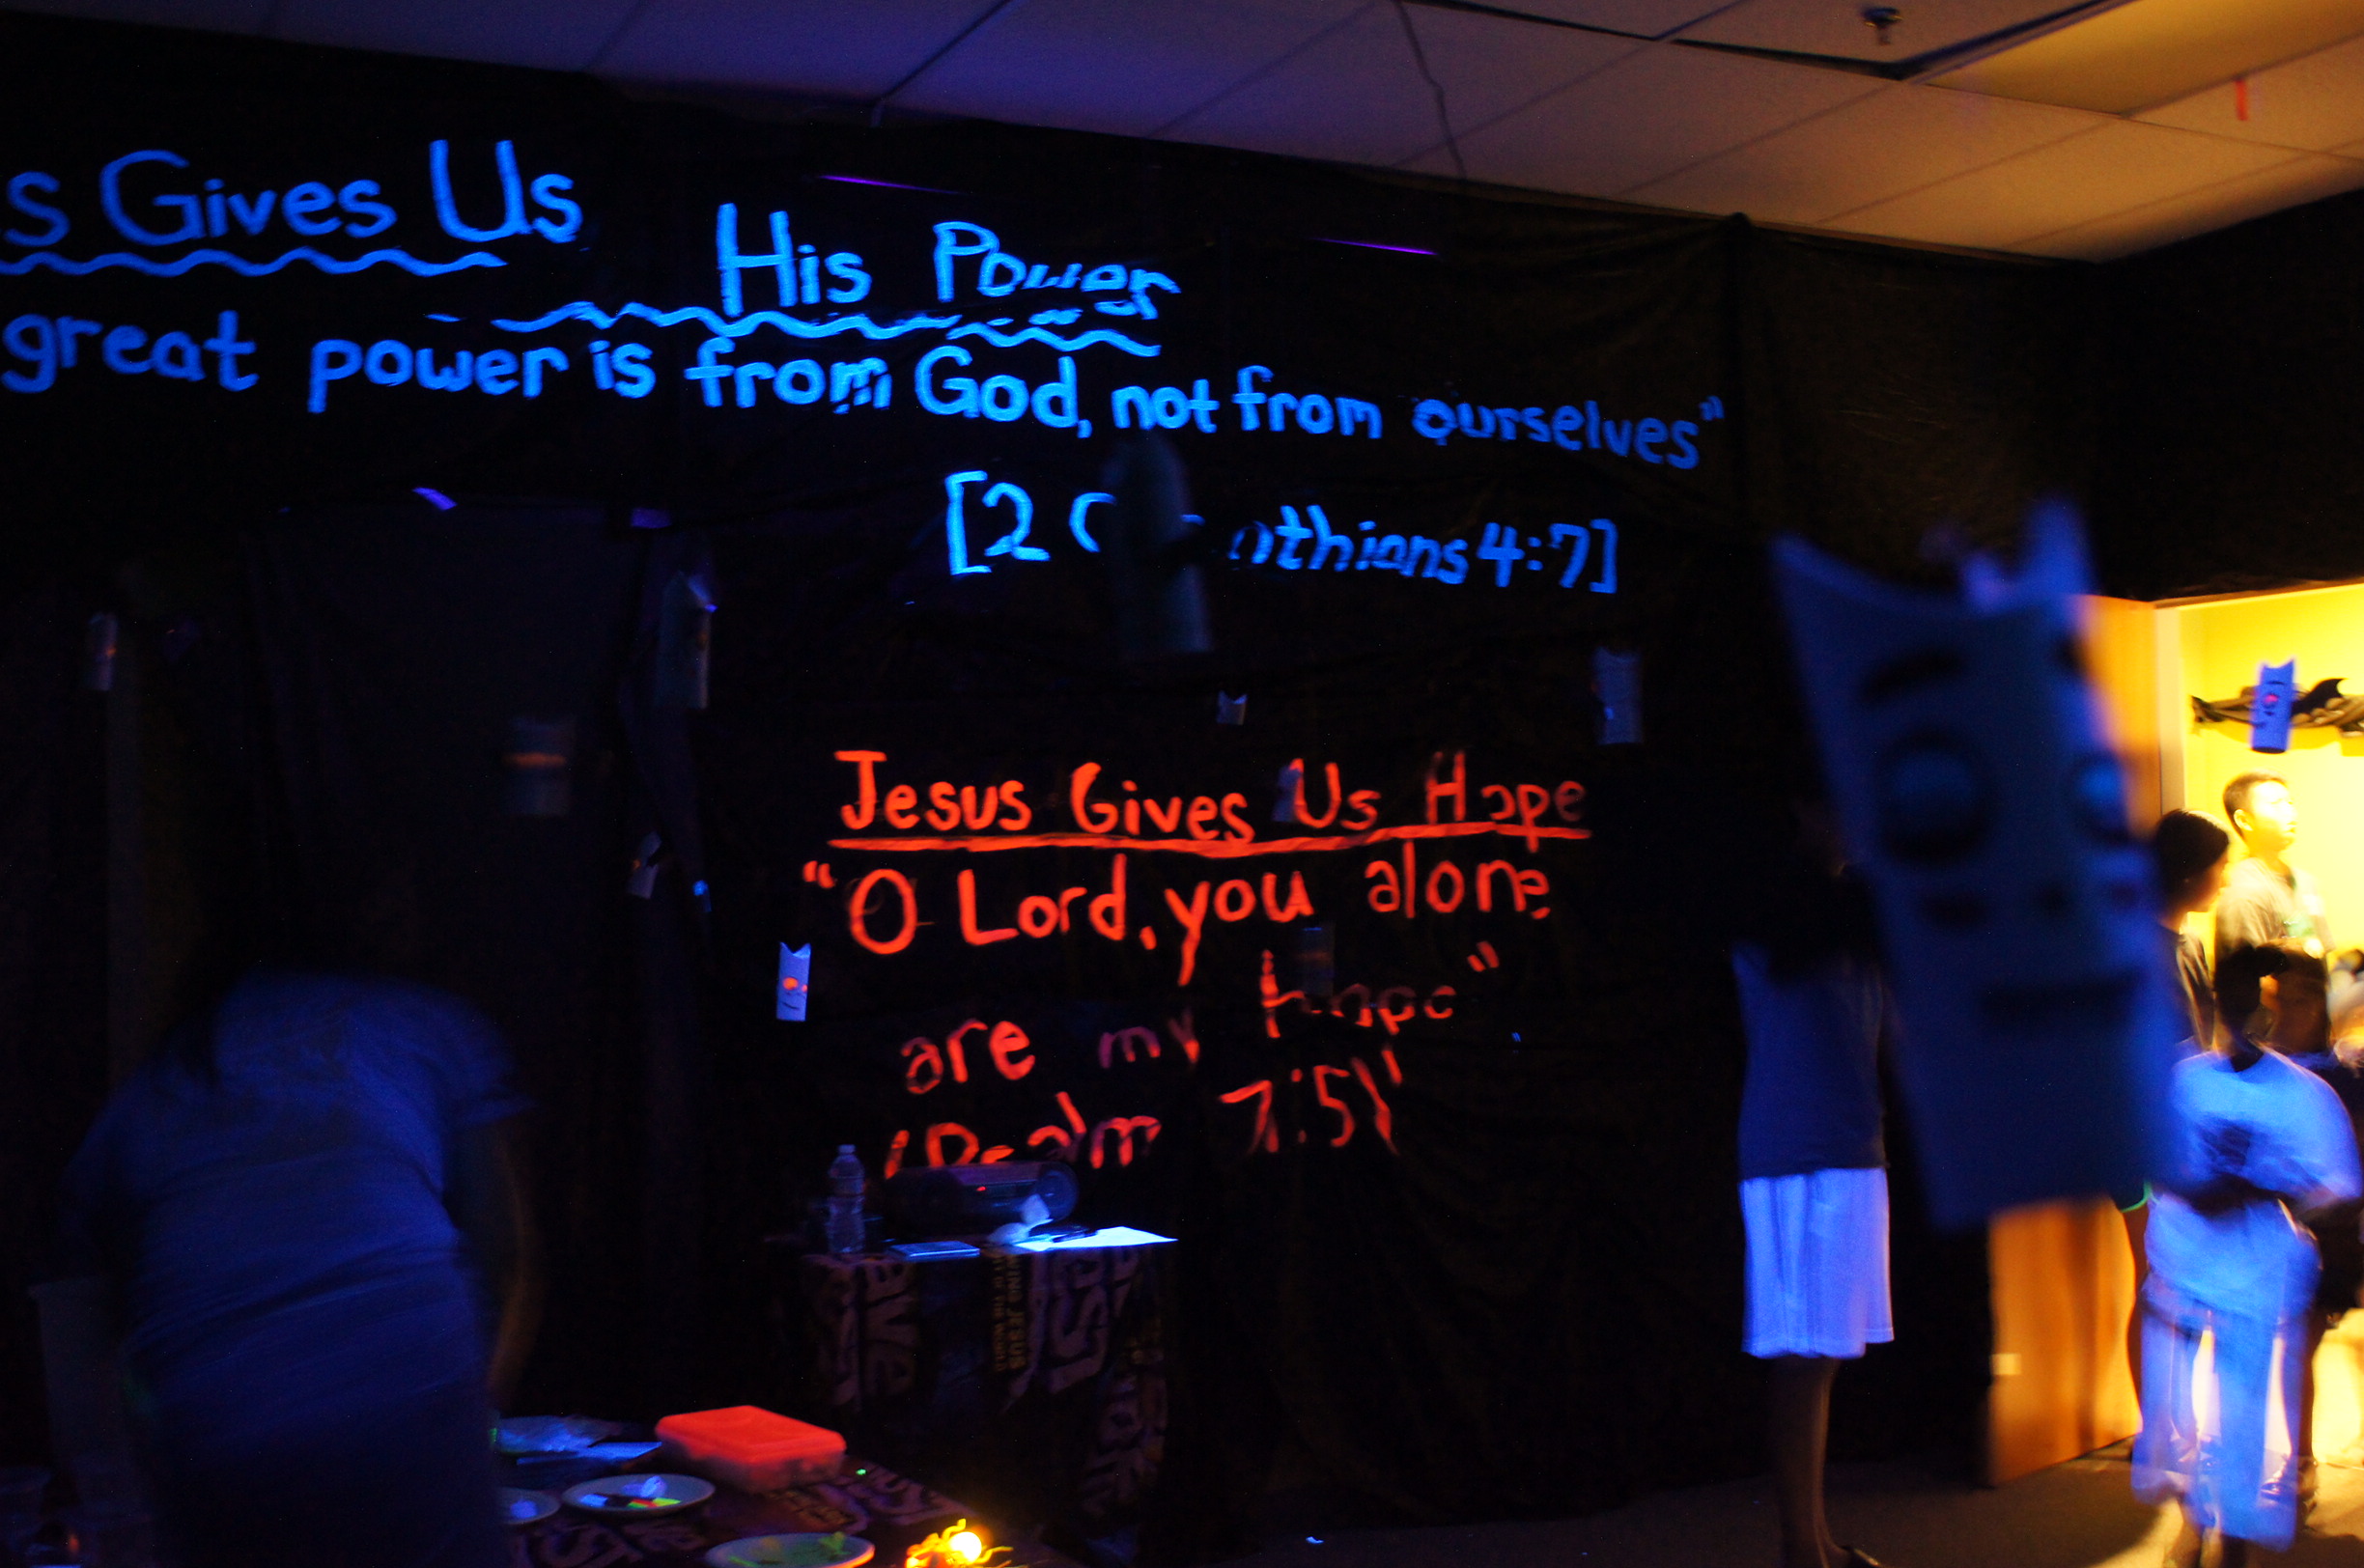 s Gives Us His Power
great power is from God, not from ourselves"
[2 Corinthians 4:7]
Jesus Gives Us Hope
"O Lord, you alone
are my hope"
(Psalm 71:5)"
ave